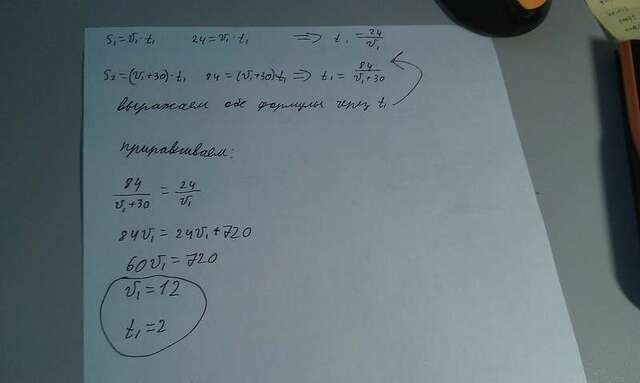 S₁=v₁·t₁ 24=v₁·t₁ => t₁=24/v₁
S₂=(v₁+30)·t₁ 84=(v₁+30)·t₁ => t₁=84/(v₁+30)
выражаем обе формулы через t₁
приравниваем:
84/(v₁+30)=24/v₁
84v₁=24v₁+720
60v₁=720
v₁=12
t₁=2